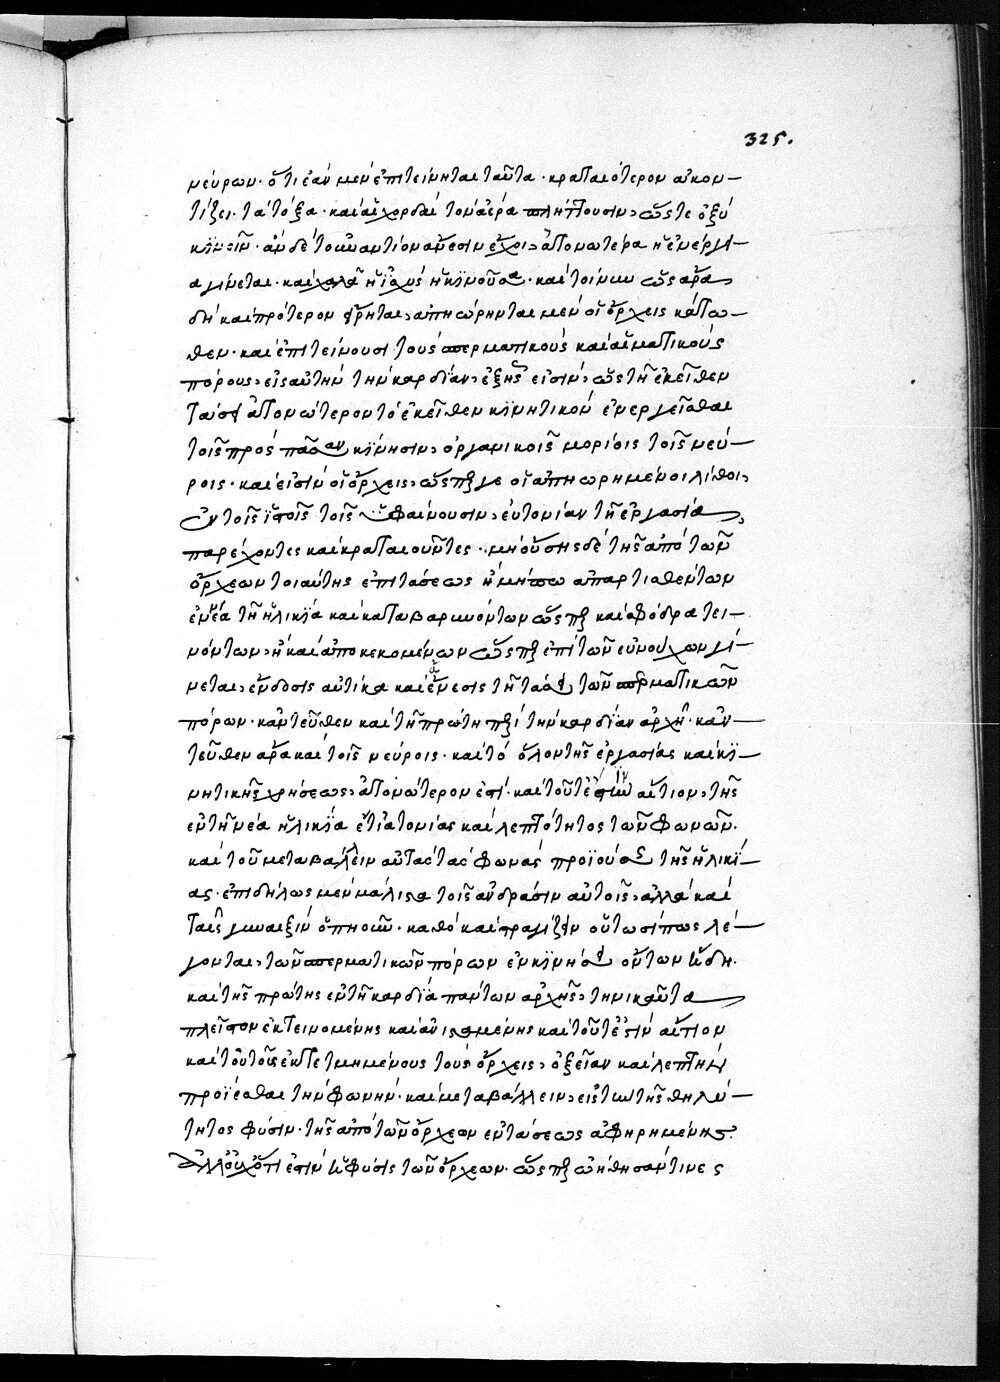 325.
νεύρων· ὅτι ἐὰν μὲν ἐπιτείνηται ταῦτα· κραταιότερον ἀκον–
τίζει· τὰ τόξα· καὶ αἱ χορδαὶ τὸν ἀέρα πλήττουσιν, ὥστε ὀξὺ
κινεῖν· ἂν δὲ τοὐναντίον ἄνεσιν ἔχοι, ἀτονωτέρα ἡ ἐνέργει–
α γίνεται· καὶ χαλᾷ ἡ ἰσχὺς ἡ κινοῦσα· καὶ τοίνυν ὡς ἄρα
δὴ καὶ πρότερον εἴρηται, ἀπῃώρηνται μὲν οἱ ὄρχεις κάτω–
θεν· καὶ ἐπιτείνουσι τοὺς σπερματικοὺς καὶ αἱματικοὺς
πόρους, εἰς αὐτὴν τὴν καρδίαν, ἑξῆς εἰσὶν, ὡς τῇ ἐκεῖθεν
τάσει ἀτονώτερον τὸ ἐκεῖθεν κινητικὸν ἐνεργεῖσθαι
τοῖς πρὸς πᾶσαν κίνησιν, ὀργανικοῖς μορίοις τοῖς νεύ–
ροις· καὶ εἰσὶν οἱ ὄρχεις, ὥσπερ γε οἱ ἀπῃωρημένοι λίθοι,
ἐν τοῖς ἱστοῖς τοῖς ὑφαίνουσιν, εὐτονίαν τῇ ἐργασίᾳ,
παρέχοντες καὶ κραταιοῦντες· μὴ οὔσης δὲ τῆς ἀπὸ τῶν
ὄρχεων τοιαύτης ἐπιτάσεως ἢ μήπω ἀπαρτισθέντων
ἐν νέᾳ τῇ ἡλικίᾳ καὶ καταβαρυνόντων ὥσπερ καὶ σφόδρα τει–
νόντων, ἢ καὶ ἀποκεκομένων ὥσπερ ἐπὶ τῶν εὐνούχων γί–
νεται, ἔνδοσις αὐτίκα καὶ ἄνεσις τῇ τάσει τῶν σπερματικῶν
πόρων· κἀντεῦθεν καὶ τῇ πρώτῃ περὶ τὴν καρδίαν ἀρχῇ· κἀν–
τεῦθεν ἄρα καὶ τοῖς νεύροις· καὶ τὸ ὅλον τῆς ἐργασίας καὶ κι–
νητικῆς χρήσεως, ἀτονώτερον ἐστί· καὶ τοῦτό ἐστιν αἴτιον, τῆς
ἐν τῇ νέᾳ ἡλικίᾳ ἔτι ἀτονίας καὶ λεπτότητος τῶν φωνῶν·
καὶ τοῦ μεταβάλλειν αὐτὰς τὰς φωνὰς προϊούσης τῆς ἡλικί–
ας· ἐπιδήλως μὲν μάλιστα τοῖς ἀνδράσιν αὐτοῖς, ἀλλὰ καὶ
ταῖς γυναιξὶν ὁπηοῦν· καθὸ καὶ τραγίζειν οὕτωσί πως λέ–
γονται, τῶν σπερματικῶν πόρων ἐν κινήσει ὄντων ἤδη·
καὶ τῆς πρώτης ἐν τῇ καρδίᾳ πάντων ἀρχῆς, τηνικαῦτα
πλεῖστον ἐκτεινομένης καὶ ἀνισταμένης καὶ τοῦτό ἐστιν αἴτιον
καὶ τοῦ τοὺς ἐκτετμημένους τοὺς ὄρχεις, ὀξεῖαν καὶ λεπτὴν
προΐεσθαι τὴν φωνήν· καὶ μεταβάλλειν, εἰς τὴν τῆς θηλύ–
τητος φύσιν· τῆς ἀπὸ τῶν ὄρχεων ἐντάσεως ἀφῃρημένης·
ἀλλ' οὐχ ὅτι ἐστὶν ἡ φύσις τῶν ὄρχεων· ὥσπερ ᾠήθησάν τινες